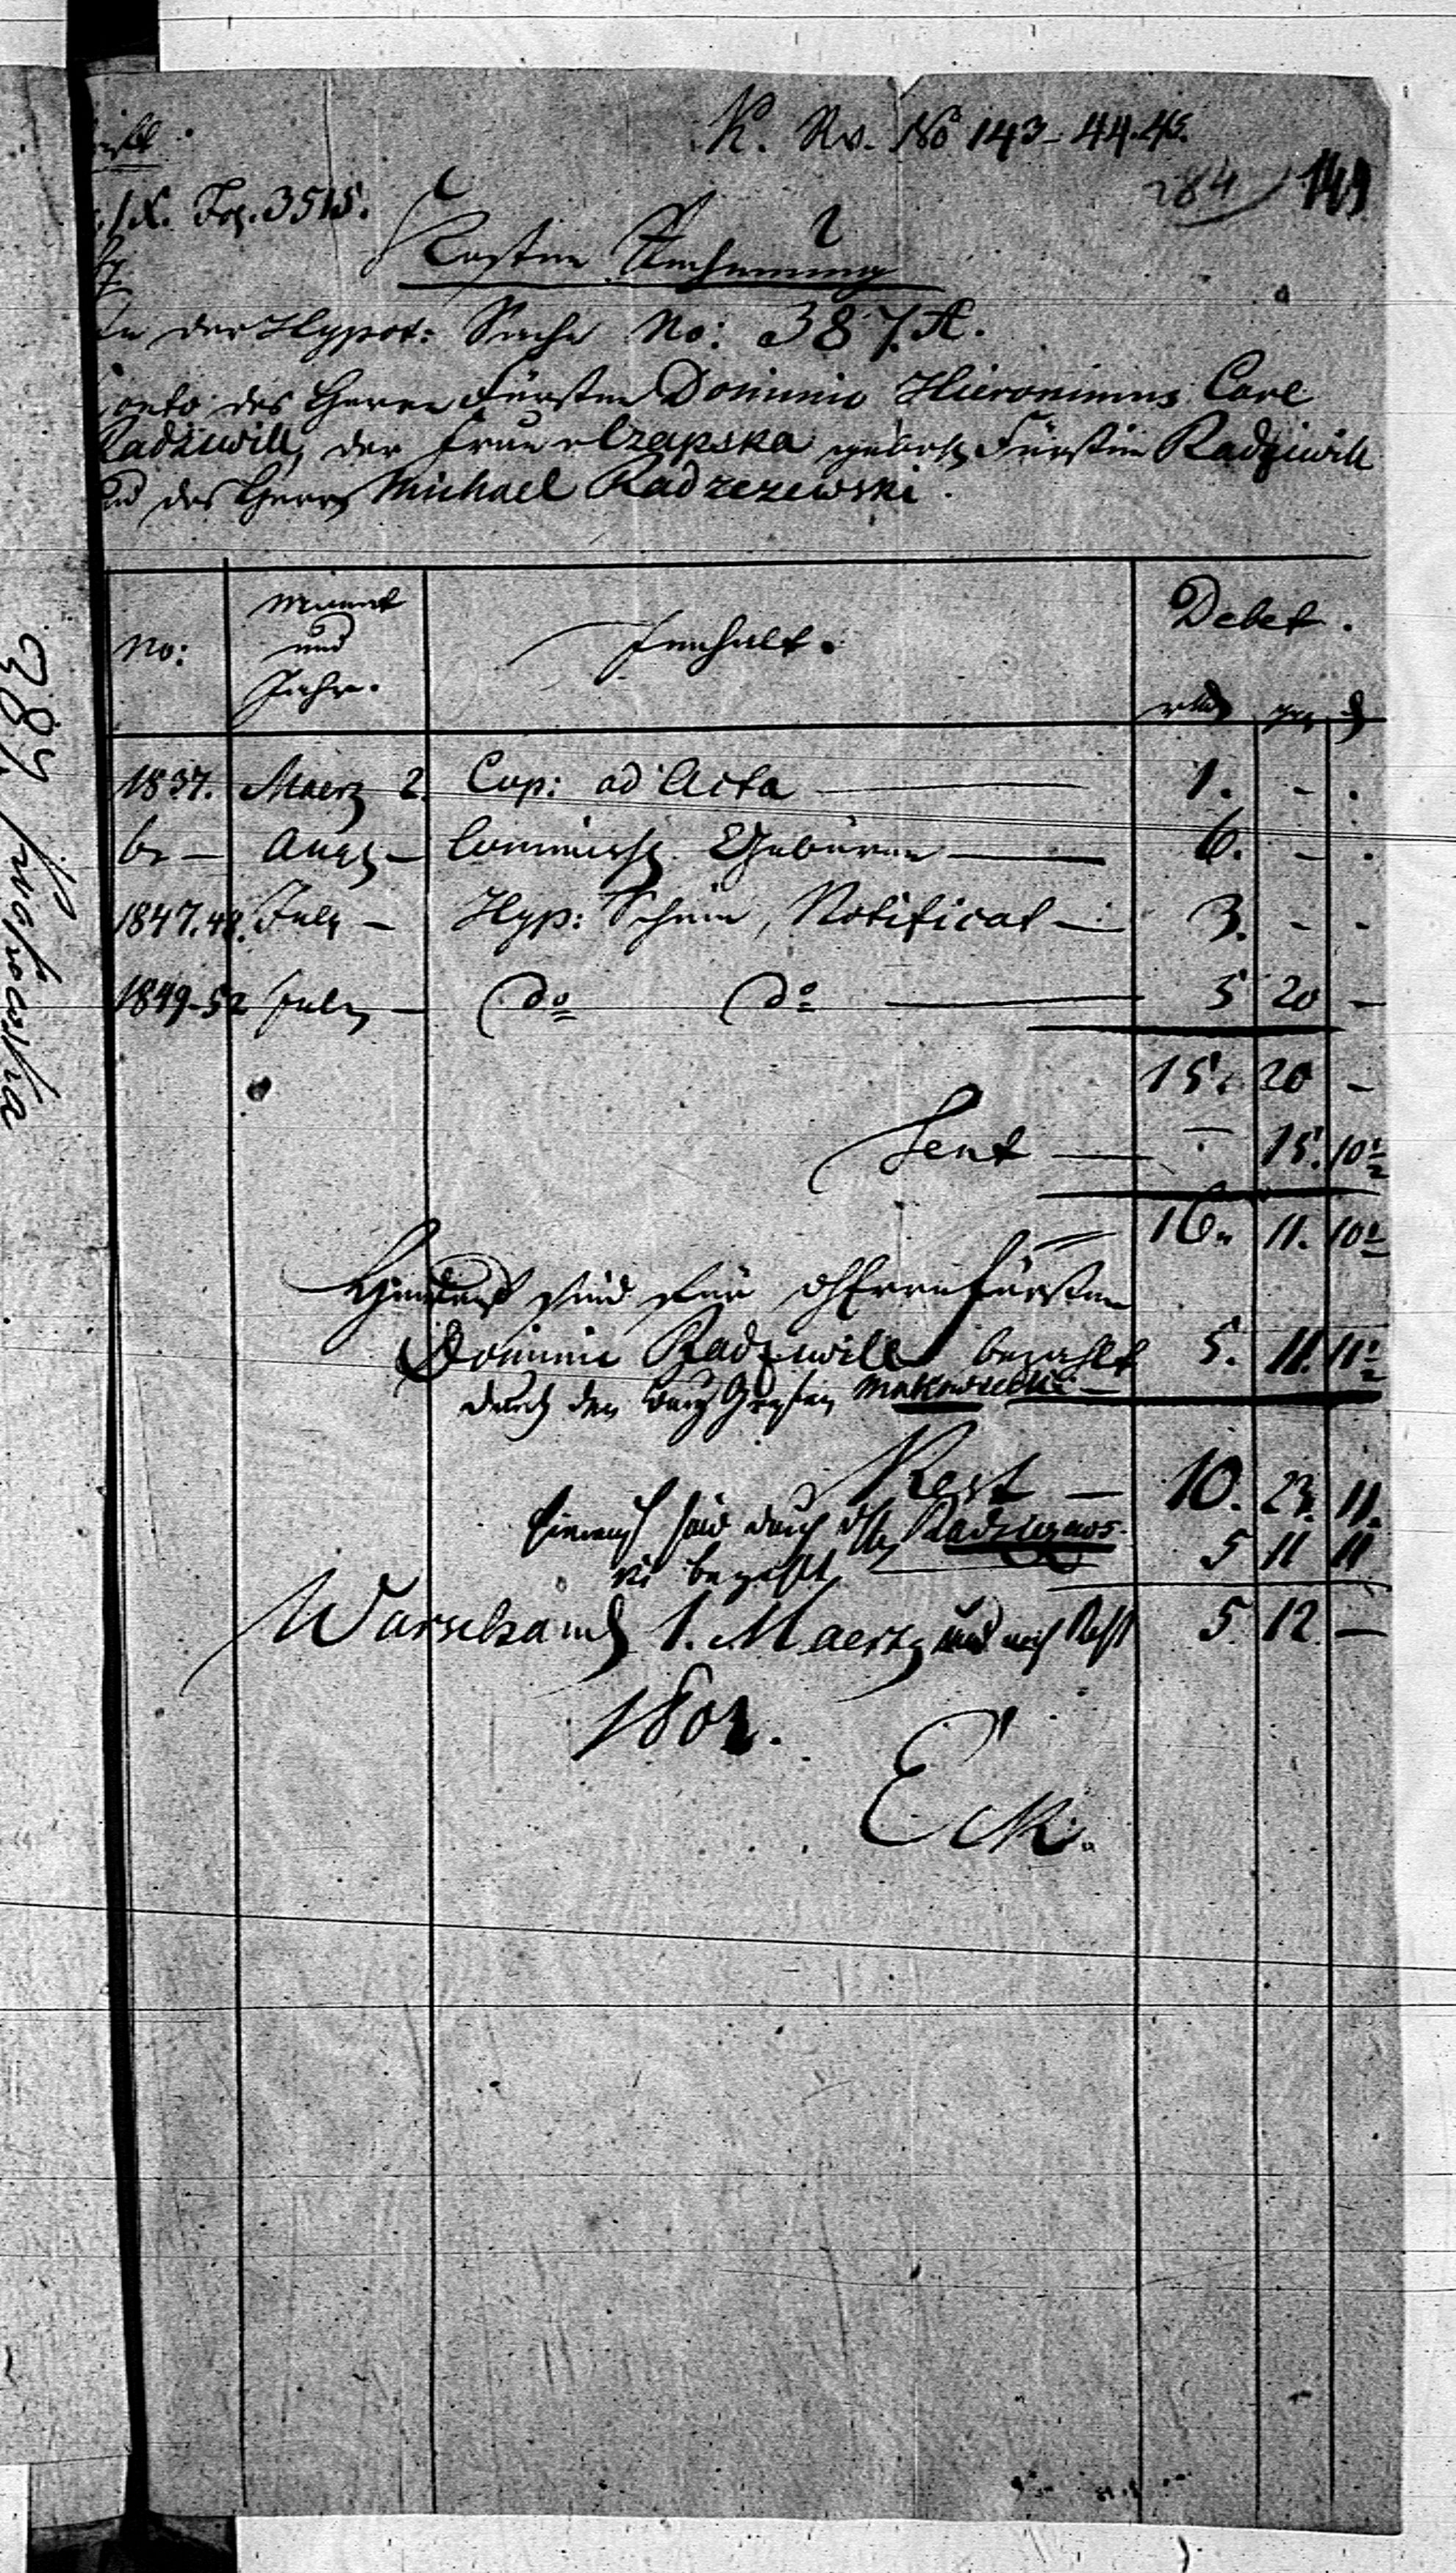 K. Rv. No 143-44.45.
284 149
IX. Fol. 3515.
Kosten Rechnung
In der Hypot: Sache No: 387.A.
Conto des Herrn Fürsten Dominic Hieronimus Carl
Radziwill, der Frau v Czapska gebohr Fürstin Radziwill
und des Herrn Michael Radzezewski.
No: Monat und Jahr. Innhalt. Debet.
rtlr ggr d
1837. Maerz 2. Cop: ad Acta — 1. - .
be — Augs — Commiss Gebüren — 6. - .
1847.48. July — Hyp: Schein, Notificat — 3. - -
1849-52 July — do do — 5 20 —
15. 20 —
Sent — - 15. 10½
16. 11. 10½
Hierauf sind für den Fürsten
Dominic Radziwill bezahlt 5. 11. 11½
durch den Makowiecki —
Rest — 10. 23. 11.
hierauf sind durch Radziejows-
ki bezahlt 5 11 11
Warschau d 1. Maerz und noch Rest 5. 12. —
1802.
Eck.
387